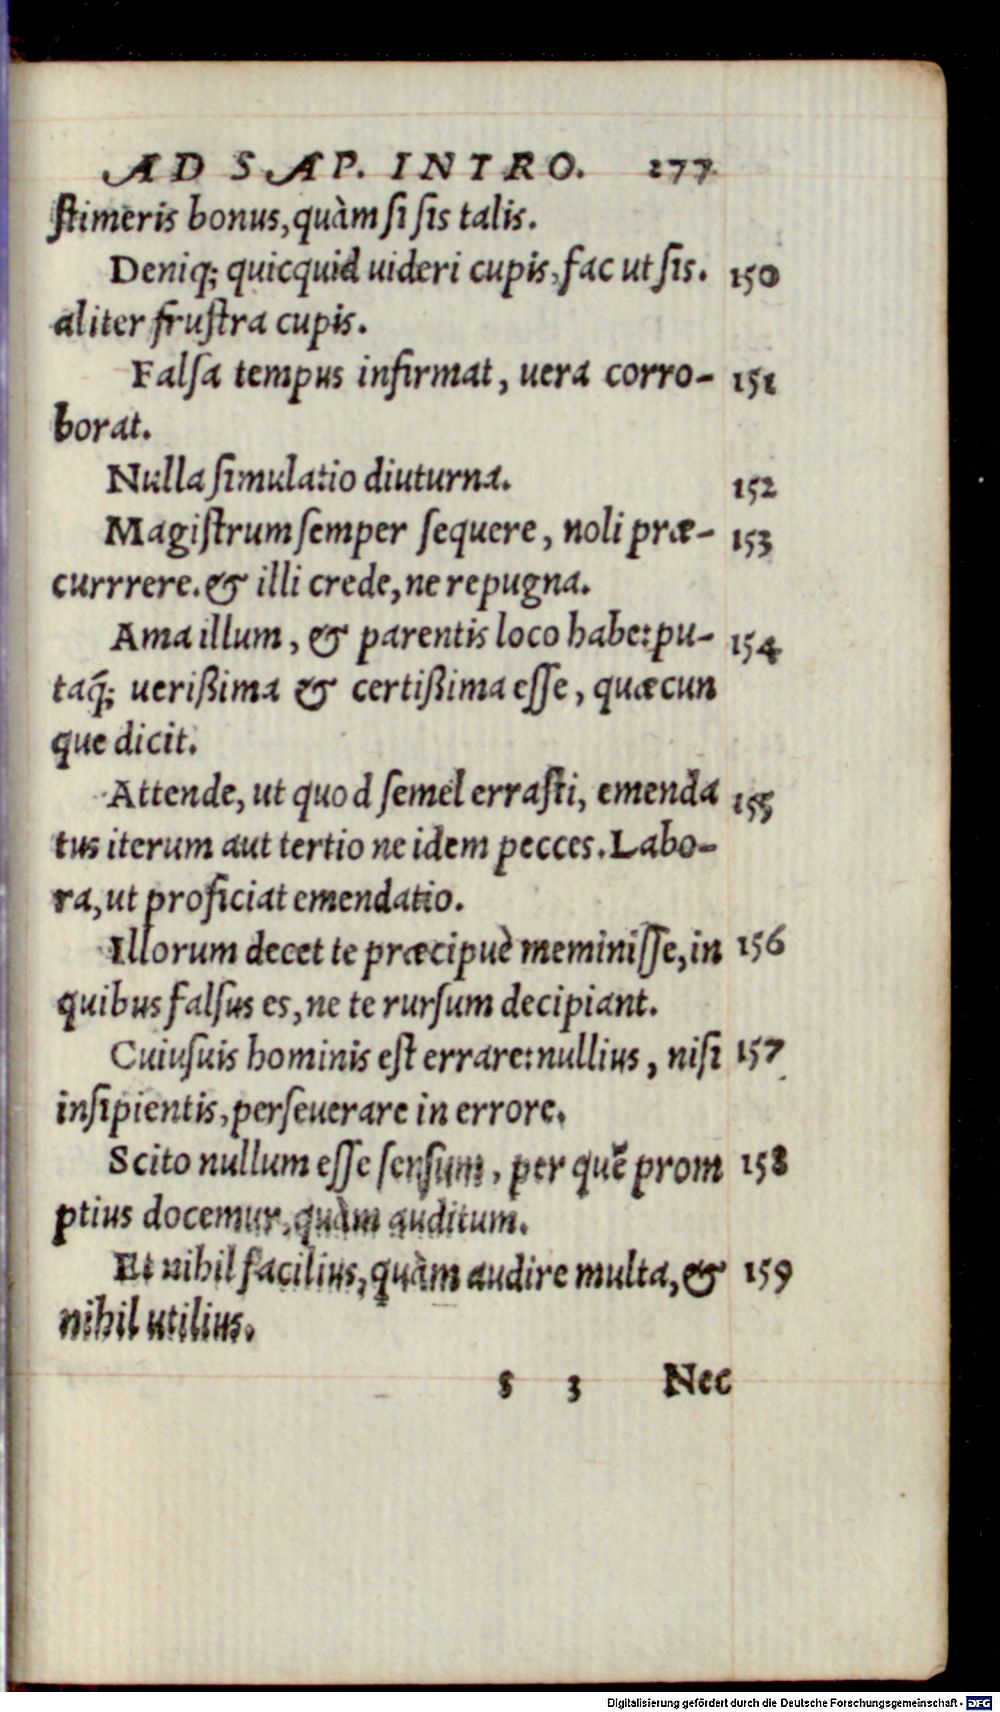 AD SAP. INTRO. 277
ſtimeris bonus, quàm ſi ſis talis.
Deniq; quicquid uideri cupis, fac ut ſis. 150
aliter fruſtra cupis.
Falſa tempus infirmat, uera corro- 151
borat.
Nulla ſimulatio diuturna. 152
Magiſtrum ſemper ſequere, noli præ- 153
currrere. & illi crede, ne repugna.
Ama illum, & parentis loco habe: pu- 154
taq́; uerißima & certißima eſſe, quæcun
que dicit.
Attende, ut quod ſemel erraſti, emenda 155
tus iterum aut tertio ne idem pecces. Labo-
ra, ut proficiat emendatio.
Illorum decet te præcipuè meminiſſe, in 156
quibus falſus es, ne te rurſum decipiant.
Cuiuſuis hominis eſt errare: nullius, niſi 157
inſipientis, perſeuerare in errore.
Scito nullum eſſe ſenſum, per quē prom 158
ptius docemur, quàm auditum.
Et nihil facilius, quàm audire multa, & 159
nihil utilius.
s 3 Nec
Digitalisierung gefördert durch die Deutsche Forschungsgemeinschaft - DFG